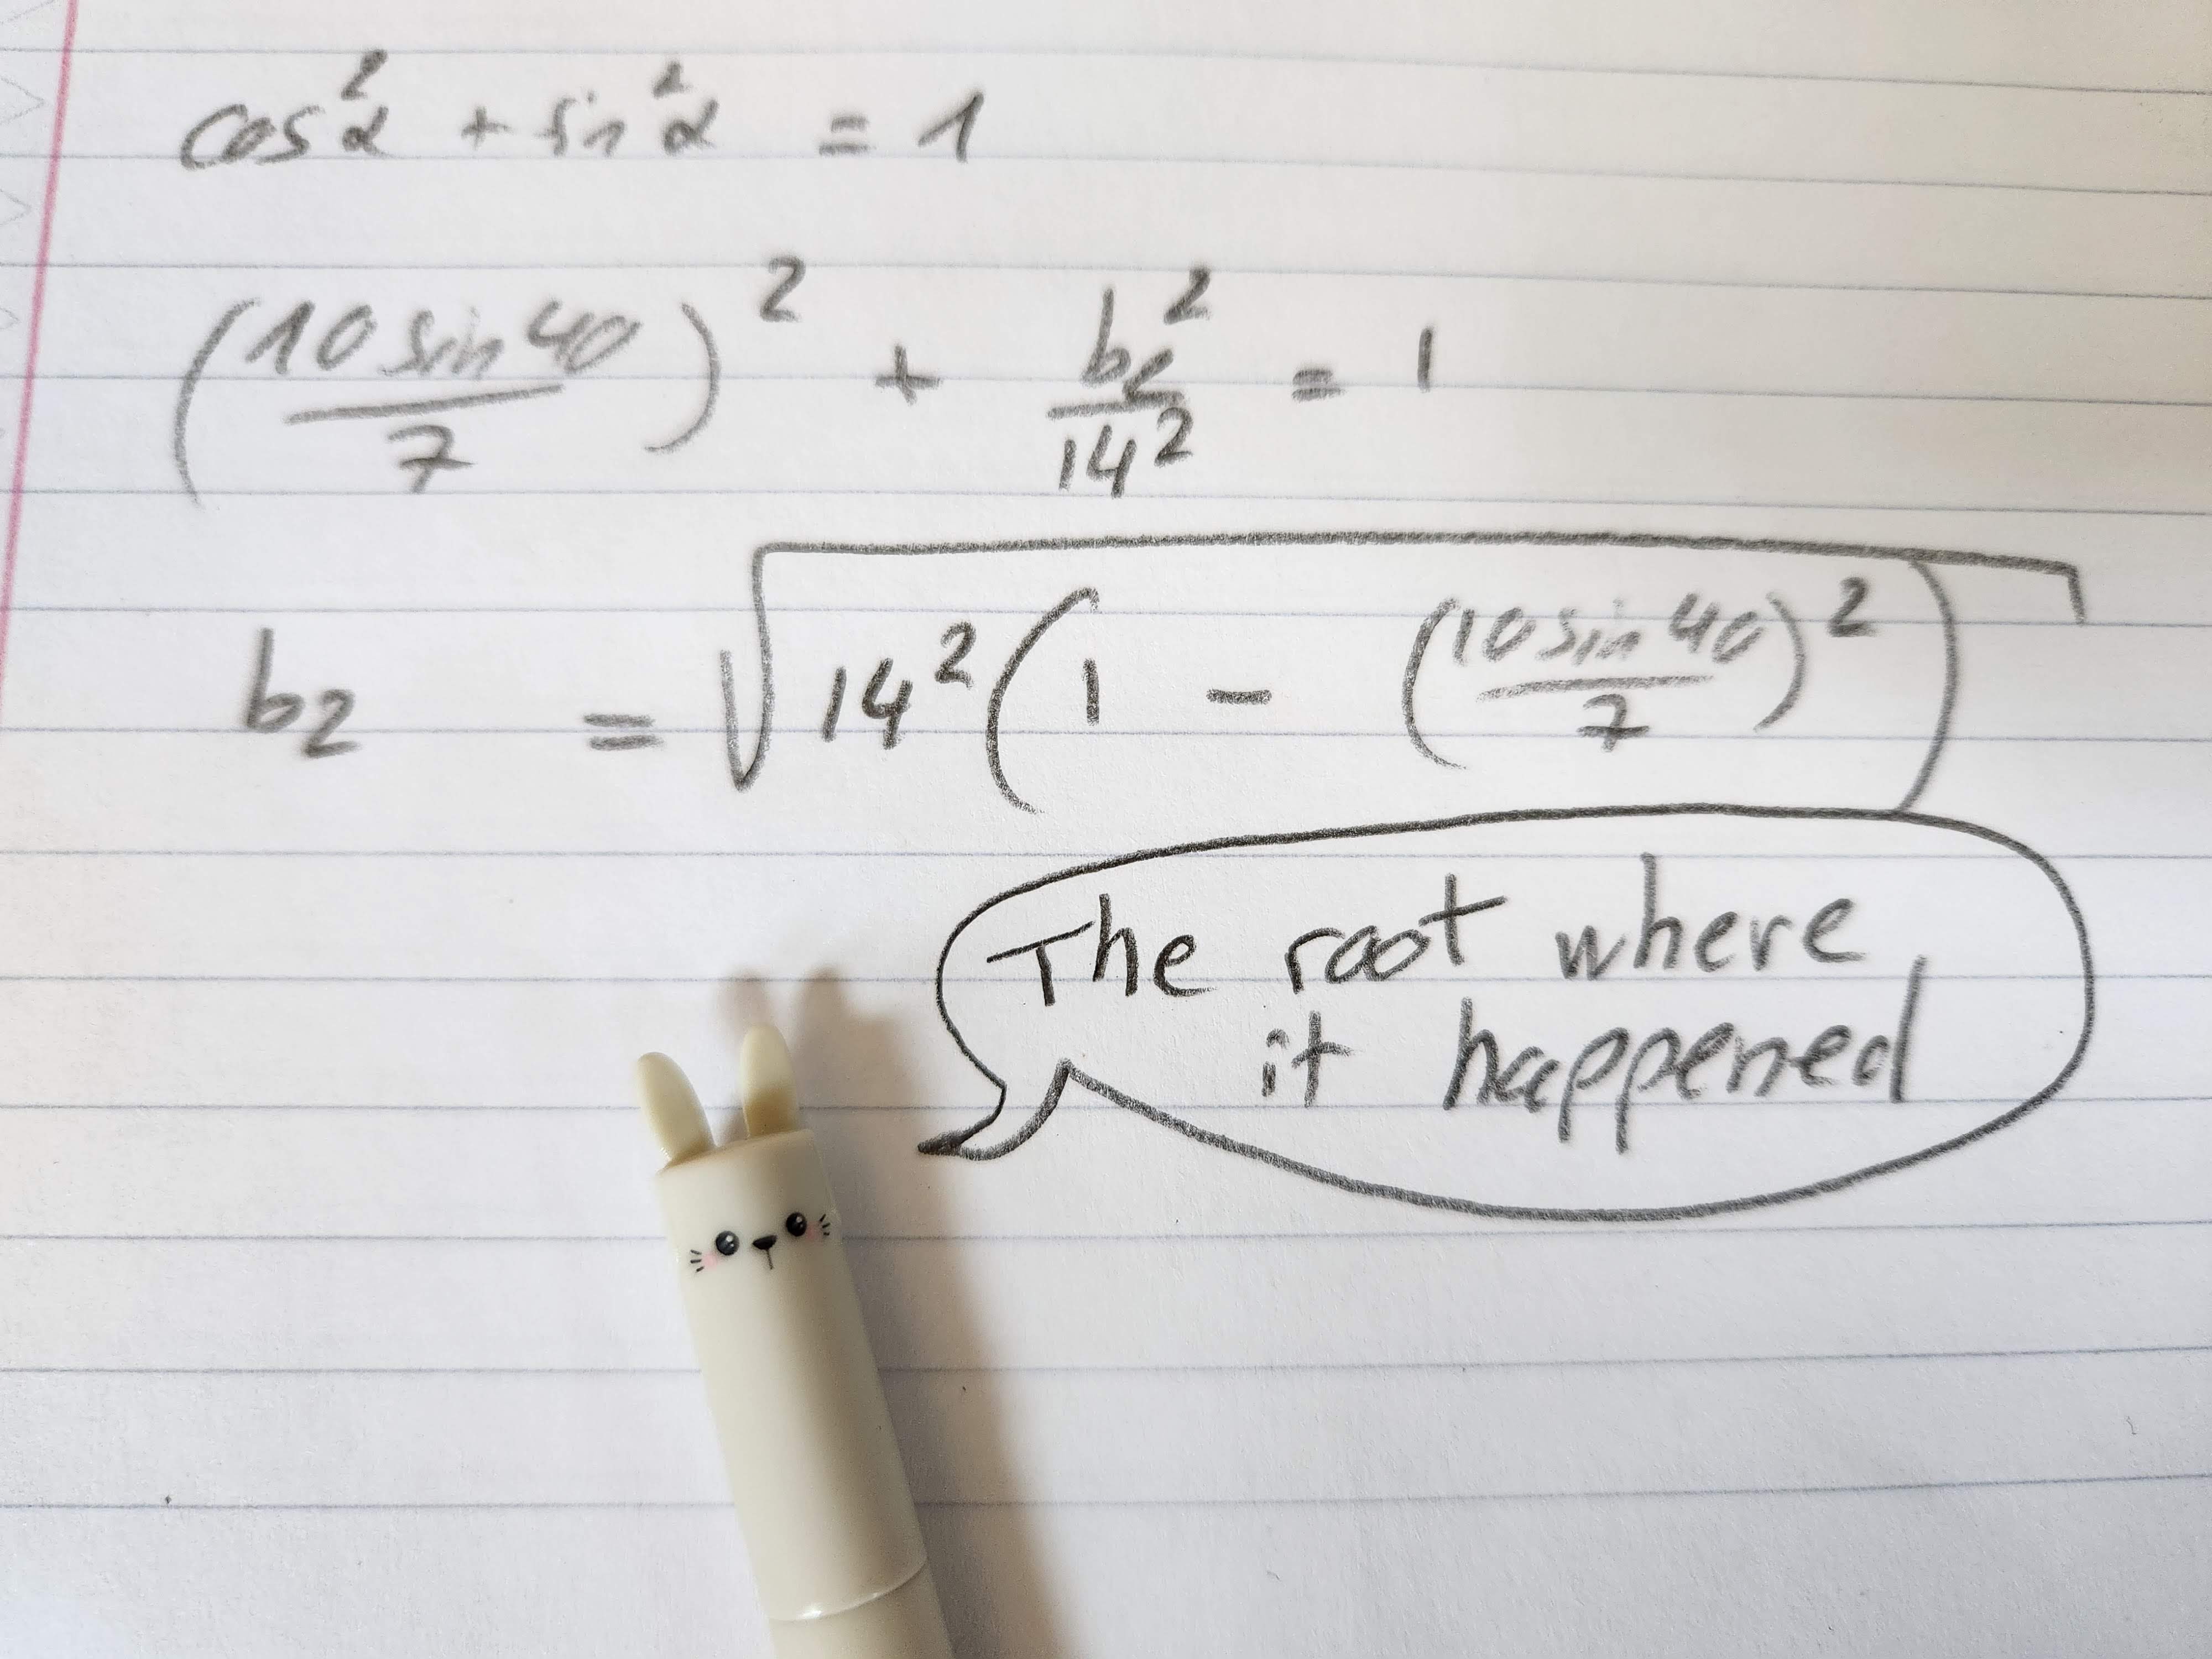 cos²α + sin²α = 1
(10 sin 40 / 7)² + b₂² / 14² = 1
b₂ = √(14² (1 - (10 sin 40 / 7)²))
The root where
it happened